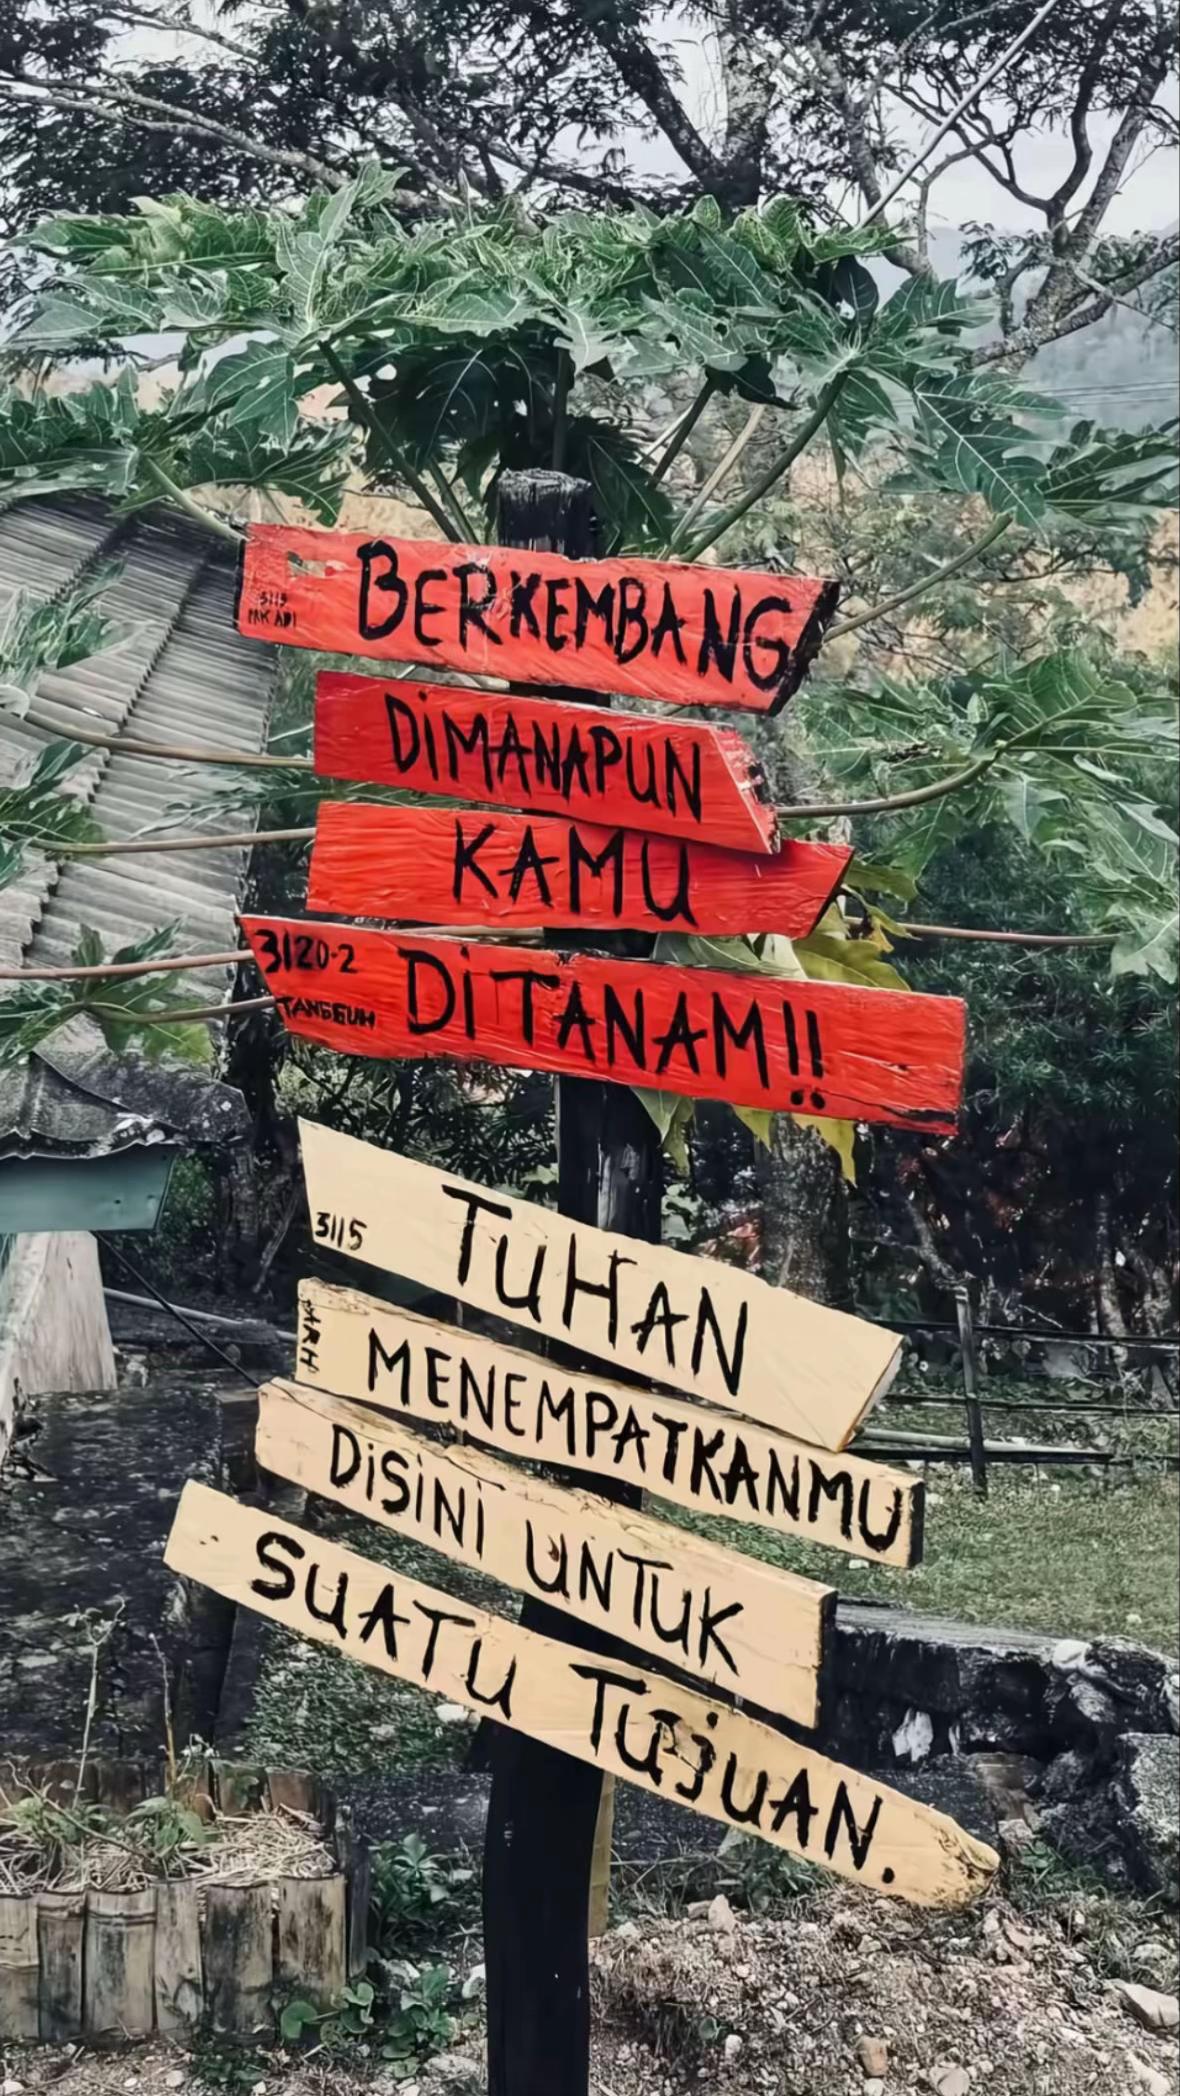 BERKEMBANG
3115
PAK ADI
DiMANAPUN
KAMU
3120-2
TANGGUH
DiTANAM!!
TUHAN
3115
ARH
MENEMPATKANMU
DiSiNi UNTUK
SUATU TUjUAN.